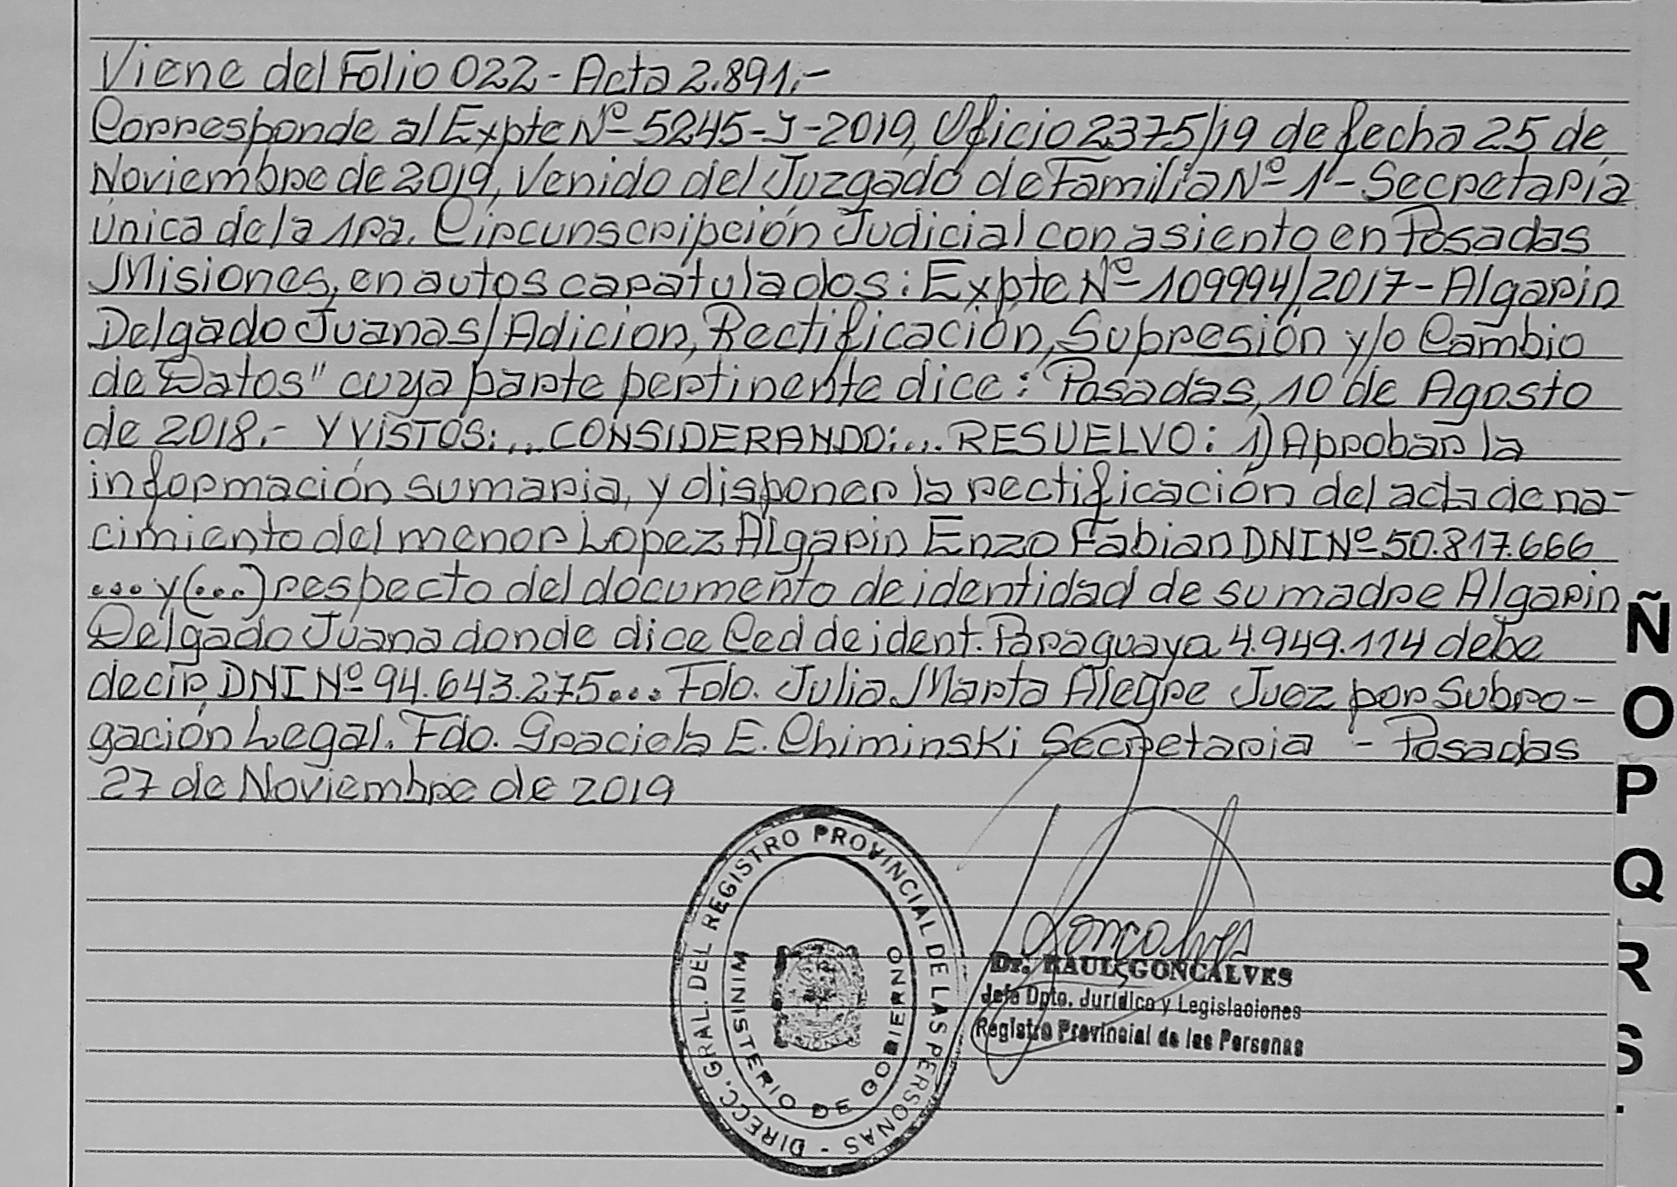 Viene del Folio 022 - Acta 2.891.-
Corresponde al Expte Nº 5245-J-2019, Oficio 2375/19 de fecha 25 de
Noviembre de 2019, Venido del Juzgado de Familia Nº 1 - Secretaria
Única de la 1ra. Circunscripción Judicial con asiento en Posadas
Misiones, en autos caratulados: Expte Nº 109994/2017 - Algarin
Delgado Juana s/ Adicion, Rectificación, Supresión y/o Cambio
de Datos" cuya parte pertinente dice: "Posadas, 10 de Agosto
de 2018.- Y VISTOS:... CONSIDERANDO:... RESUELVO: 1) Aprobar la
información sumaria, y disponer la rectificación del acta de na-
cimiento del menor Lopez Algarin Enzo Fabian DNI Nº 50.817.666
... y (...) respecto del documento de identidad de su madre Algarin
Delgado Juana donde dice Ced de ident. Paraguaya 4.949.114 debe
decir DNI Nº 94.643.275... Fdo. Julia Marta Alegre Juez por Subro-
gación Legal. Fdo. Graciela E. Chiminski Secretaria - Posadas
27 de Noviembre de 2019
DIRECC. GRAL. DEL REGISTRO PROVINCIAL DE LAS PERSONAS -
MINISTERIO DE GOBIERNO
Goncalves
Dr. RAUL GONCALVES
Jefe Dpto. Jurídico y Legislaciones
Registro Provincial de las Personas
Ñ
O
P
Q
R
S